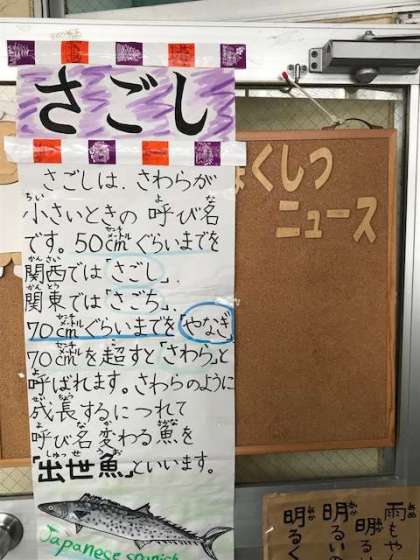 さごし
さごしは、さわらが
小さいときの呼び名
です。50cmぐらいまでを
関西では「さごし」、
関東では「さごち」、
70cmぐらいまでを「やなぎ」
70cmを超すと「さわら」と
呼ばれます。さわらのように
成長するにつれて
呼び名変わる魚を
「出世魚」といいます。
Japanese spanish
くしつ
ニュース
雨もや
明る
明るい
明るく